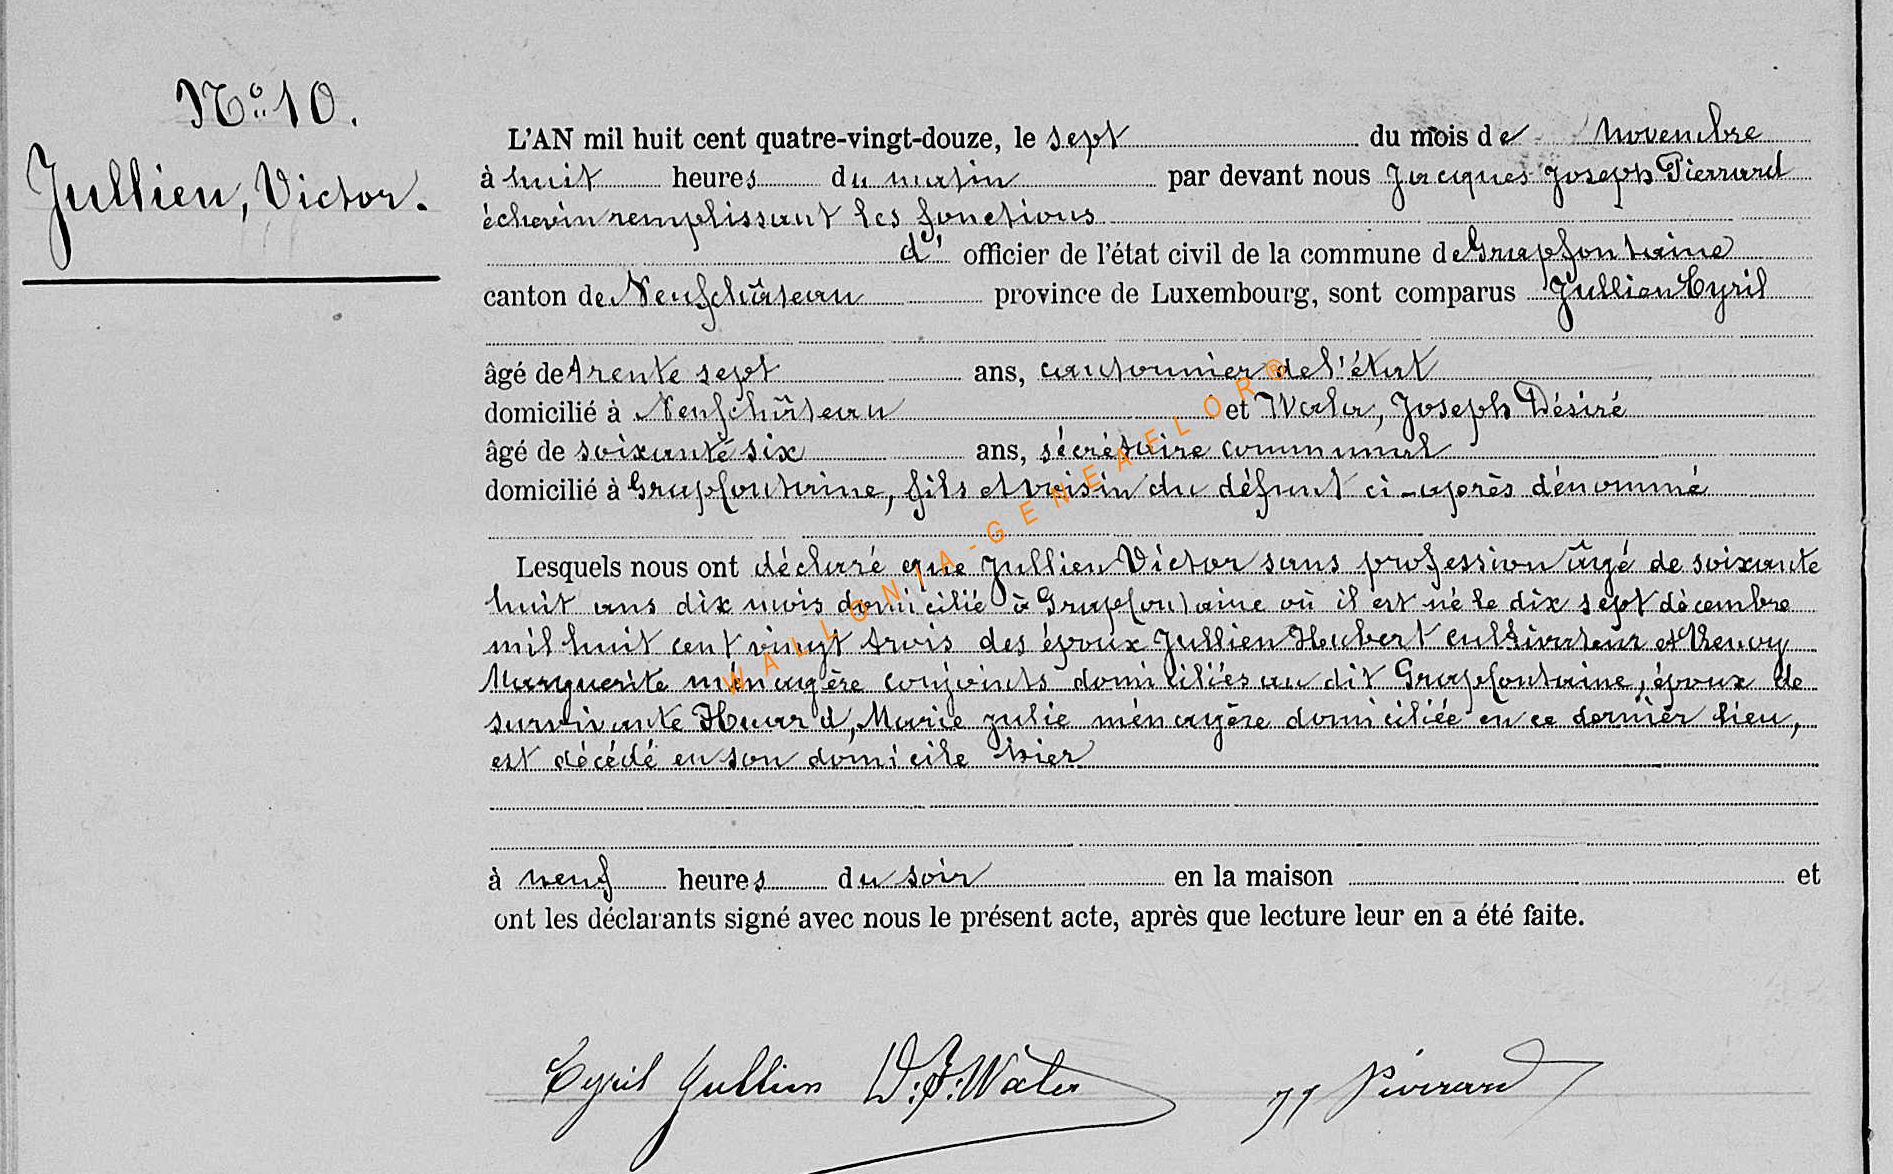 N.o 10.
Jullien, Victor.
L'AN mil huit cent quatre-vingt-douze, le sept du mois de Novembre
à huit heures du matin par devant nous Jacques Joseph Pierrard
échevin remplissant les fonctions
d' officier de l'état civil de la commune de Grapfontaine
canton de Neufchâteau province de Luxembourg, sont comparus Jullien Cyril
âgé de trente sept ans, cantonnier de l'état
domicilié à Neufchâteau et Wala, Joseph Désiré
âgé de soixante six ans, sécrétaire communal
domicilié à Grapfontaine, fils et voisin du défunt ci-après dénommé
Lesquels nous ont déclaré que Jullien Victor sans profession âgé de soixante
huit ans dix mois domicilié à Grapfontaine où il est né le dix sept décembre
mil huit cent vingt trois des époux Jullien Hubert cultivateur et Thenry
Marguerite ménagère conjoints domiciliés au dit Grapfontaine, époux de
survivante Huard, Marie Julie ménagère domiciliée en ce dernier lieu,
est décédé en son domicile hier
à neuf heures du soir en la maison et
ont les déclarants signé avec nous le présent acte, après que lecture leur en a été faite.
Cyril Jullien D.J. Wala JJ Pierrard
WALLONIA-GENEAELOR®